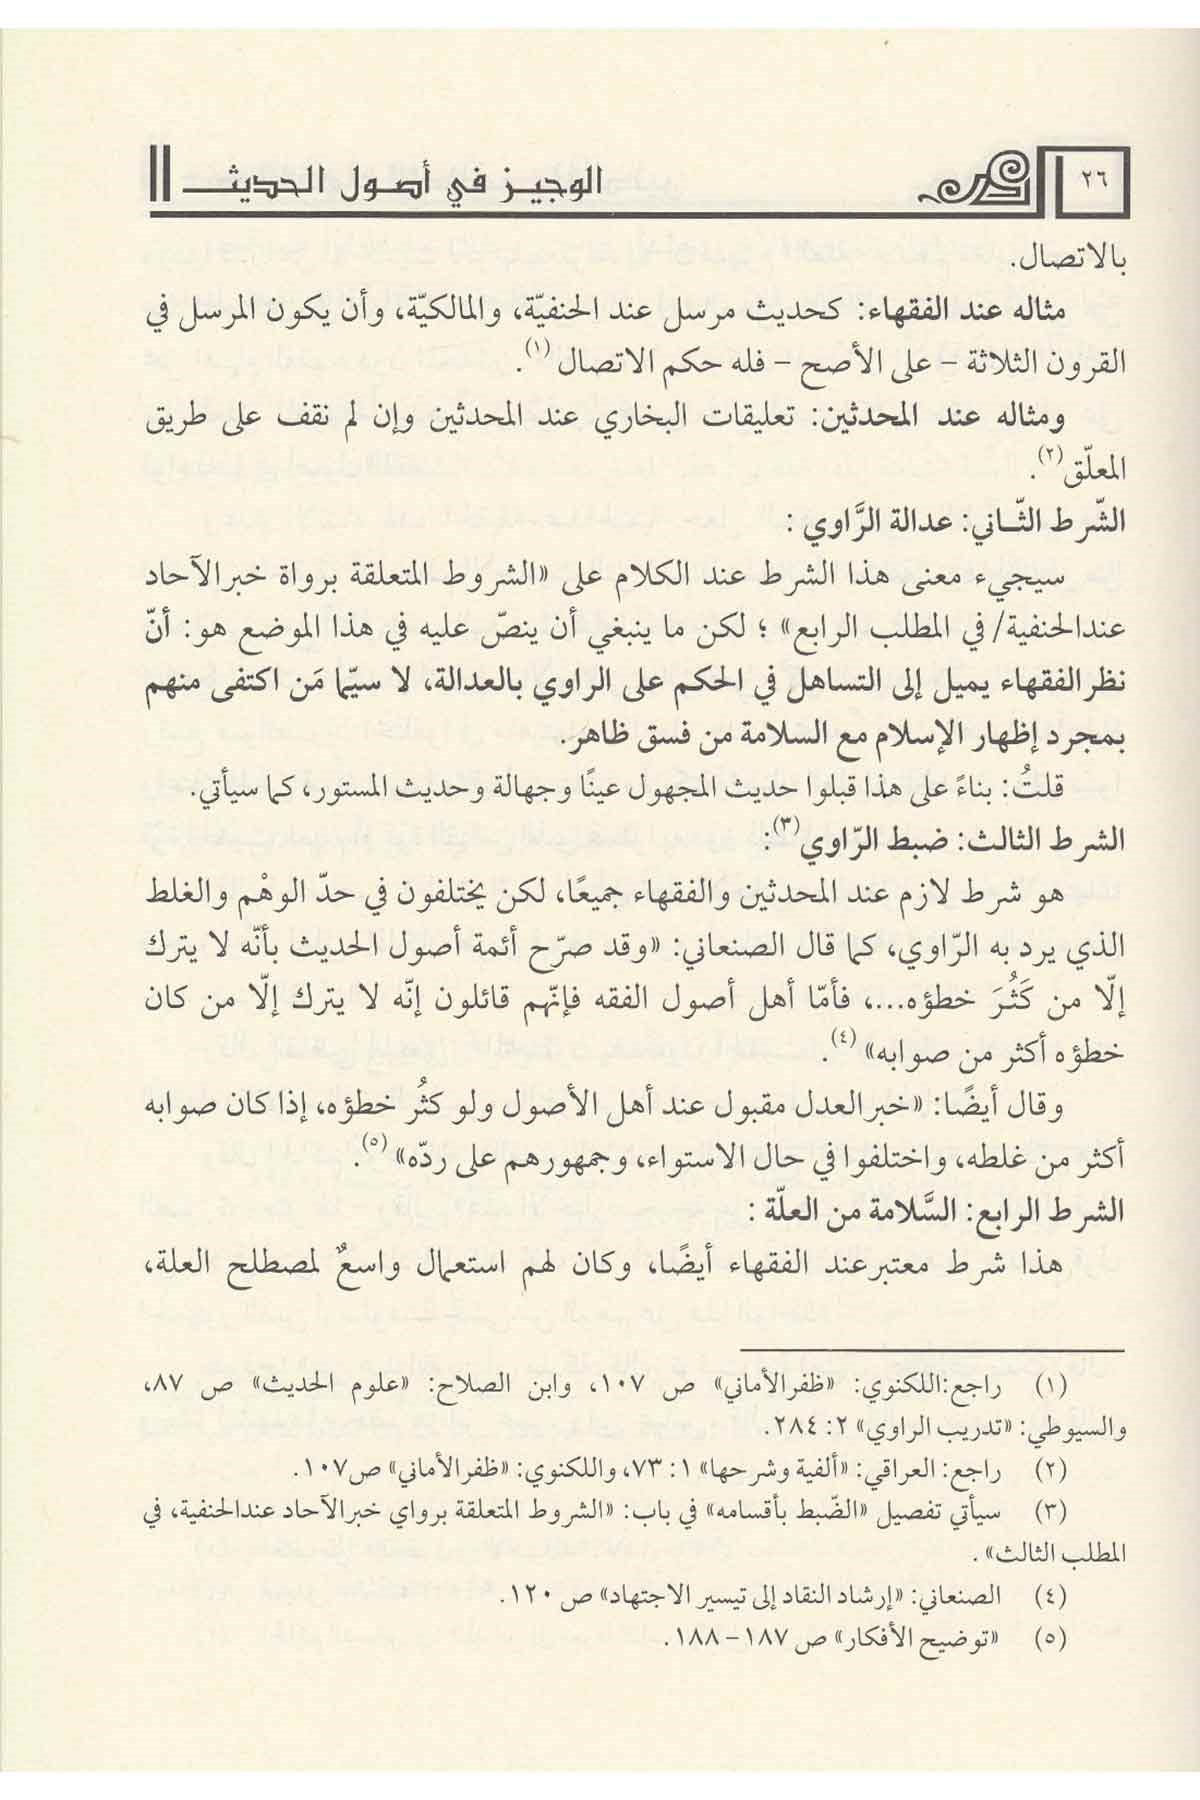 ٢٦
الوجيز في أصول الحديث
بالاتصال.
مثاله عند الفقهاء: كحديث مرسل عند الحنفيّة، والمالكيّة، وأن يكون المرسل في
القرون الثلاثة – على الأصح – فله حكم الاتصال (١).
ومثاله عند المحدثين: تعليقات البخاري عند المحدثين وإن لم نقف على طريق
المعلّق(٢).
الشّرط الثّاني: عدالة الرَّاوي :
سيجيء معنى هذا الشرط عند الكلام على «الشروط المتعلقة برواة خبرالآحاد
عندالحنفية/ في المطلب الرابع» ؛ لكن ما ينبغي أن ينصّ عليه في هذا الموضع هو: أنّ
نظرالفقهاء يميل إلى التساهل في الحكم على الراوي بالعدالة، لا سيّما مَن اكتفى منهم
بمجرد إظهار الإسلام مع السلامة من فسق ظاهر.
قلتُ: بناءً على هذا قبلوا حديث المجهول عينًا وجهالة وحديث المستور، كما سيأتي.
الشرط الثالث: ضبط الرّاوي(٣):
هو شرط لازم عند المحدثين والفقهاء جميعًا، لكن يختلفون في حدّ الوهْم والغلط
الذي يرد به الرّاوي، كما قال الصنعاني: «وقد صرّح أئمة أصول الحديث بأنّه لا يترك
إلّا من كَثُرَ خطؤه...، فأمّا أهل أصول الفقه فإنّهم قائلون إنّه لا يترك إلّا من كان
خطؤه أكثر من صوابه» (٤).
وقال أيضًا: «خبرالعدل مقبول عند أهل الأصول ولو كثُر خطؤه، إذا كان صوابه
أكثر من غلطه، واختلفوا في حال الاستواء، وجمهورهم على ردّه» (٥).
الشرط الرابع: السَّلامة من العلّة :
هذا شرط معتبرعند الفقهاء أيضًا، وكان لهم استعمال واسعٌ لمصطلح العلة،
(١) راجع:اللكنوي: «ظفرالأماني» ص ١٠٧، وابن الصلاح: «علوم الحديث» ص ٨٧،
والسيوطي: «تدريب الراوي» ٢: ٢٨٤.
(٢) راجع: العراقي: «ألفية وشرحها» ١: ٧٣، واللكنوي: «ظفرالأماني» ص١٠٧.
(٣) سيأتي تفصيل «الضّبط بأقسامه» في باب: «الشروط المتعلقة برواي خبرالآحاد عندالحنفية، في
المطلب الثالث» .
(٤) الصنعاني: «إرشاد النقاد إلى تيسير الاجتهاد» ص ١٢٠.
(٥) «توضيح الأفكار» ص ١٨٧– ١٨٨.